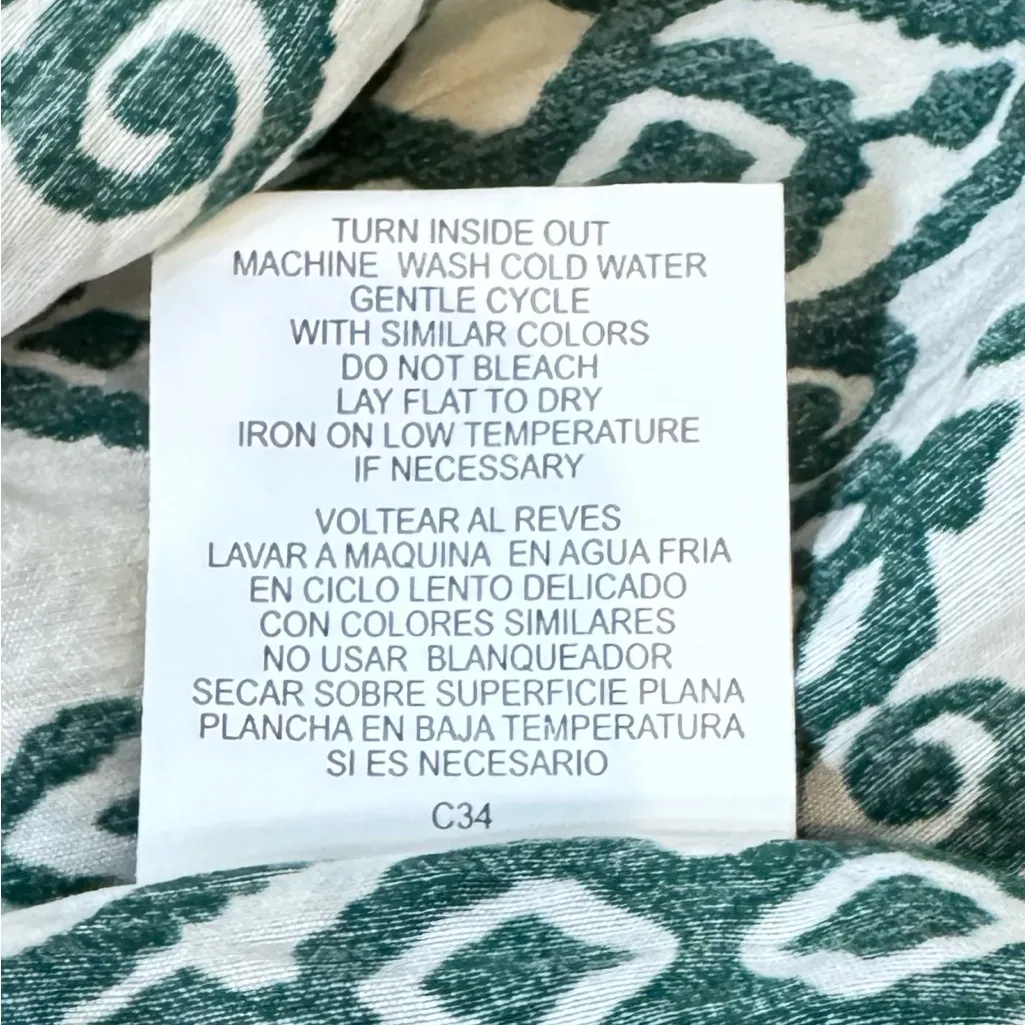 TURN INSIDE OUT
MACHINE WASH COLD WATER
GENTLE CYCLE
WITH SIMILAR COLORS
DO NOT BLEACH
LAY FLAT TO DRY
IRON ON LOW TEMPERATURE
IF NECESSARY
VOLTEAR AL REVES
LAVAR A MAQUINA EN AGUA FRIA
EN CICLO LENTO DELICADO
CON COLORES SIMILARES
NO USAR BLANQUEADOR
SECAR SOBRE SUPERFICIE PLANA
PLANCHA EN BAJA TEMPERATURA
SI ES NECESARIO
C34